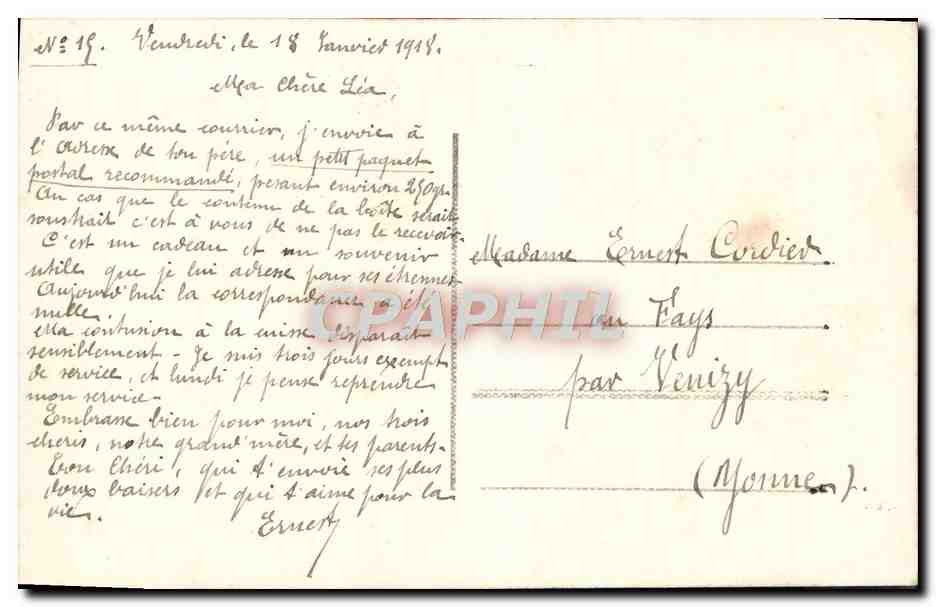 No 15. Vendredi, le 18 Janvier 1918.
Ma Chère Léa,
Par ce même courrier, j'envoie à
l'adresse de ton père, un petit paquet
postal recommandé, pesant environ 250gr.
Au cas que le contenu de la boîte serait
soustrait c'est à vous de ne pas le recevoir.
C'est un cadeau et un souvenir
utile que je lui adresse pour ses étrennes
Aujourd'hui la correspondance a été
nulle.
Ma contusion à la cuisse disparaît
sensiblement - Je suis trois jours exempt
de service, et lundi je pense reprendre
mon service -
Embrasse bien pour moi, nos trois
chéris, notre grand'mère, et tes parents -
Ton Chéri, qui t'envoie ses plus
doux baisers et qui t'aime pour la
vie.
Ernest
Madame Ernest Cordier.
au Fays
par Venizy
(Yonne).
CPAPHIL